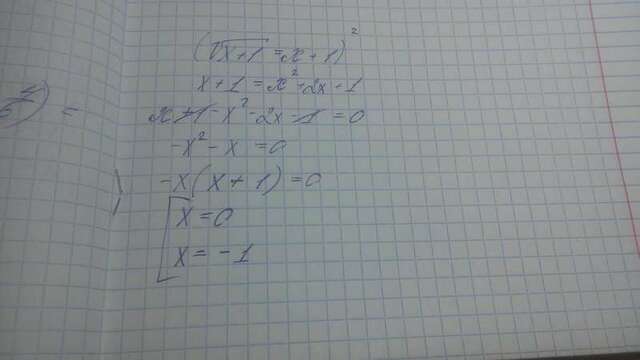 (√x+1 = x+1)²
x+1 = x²-2x-1
x+1-x²-2x-1 = 0
-x²-x = 0
-x(x+1) = 0
[x = 0
x = -1